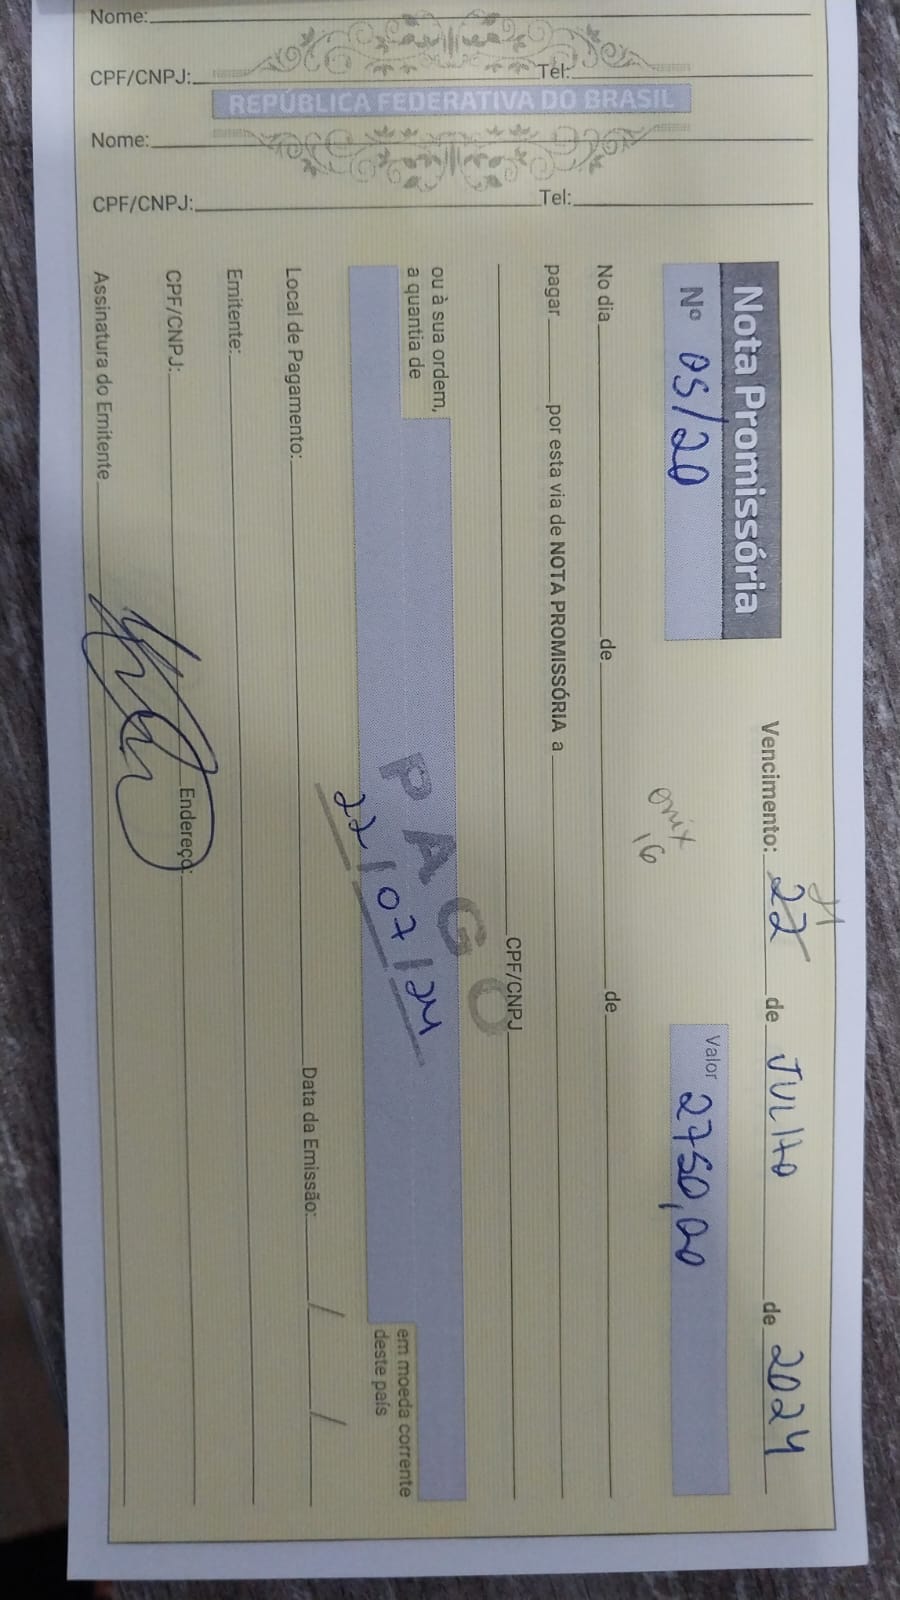 Nome:
CPF/CNPJ: Tel:
REPÚBLICA FEDERATIVA DO BRASIL
Nome:
CPF/CNPJ: Tel:
Nota Promissória Vencimento: 22 21 de JULHO de 2024
Nº 05/20 Valor 2750,00
onix
16
No dia de de
pagar por esta via de NOTA PROMISSÓRIA a
CPF/CNPJ
ou à sua ordem,
a quantia de
PAGO
22/07/24
em moeda corrente
deste país
Local de Pagamento: Data da Emissão: / /
Emitente:
CPF/CNPJ: Endereço:
Assinatura do Emitente